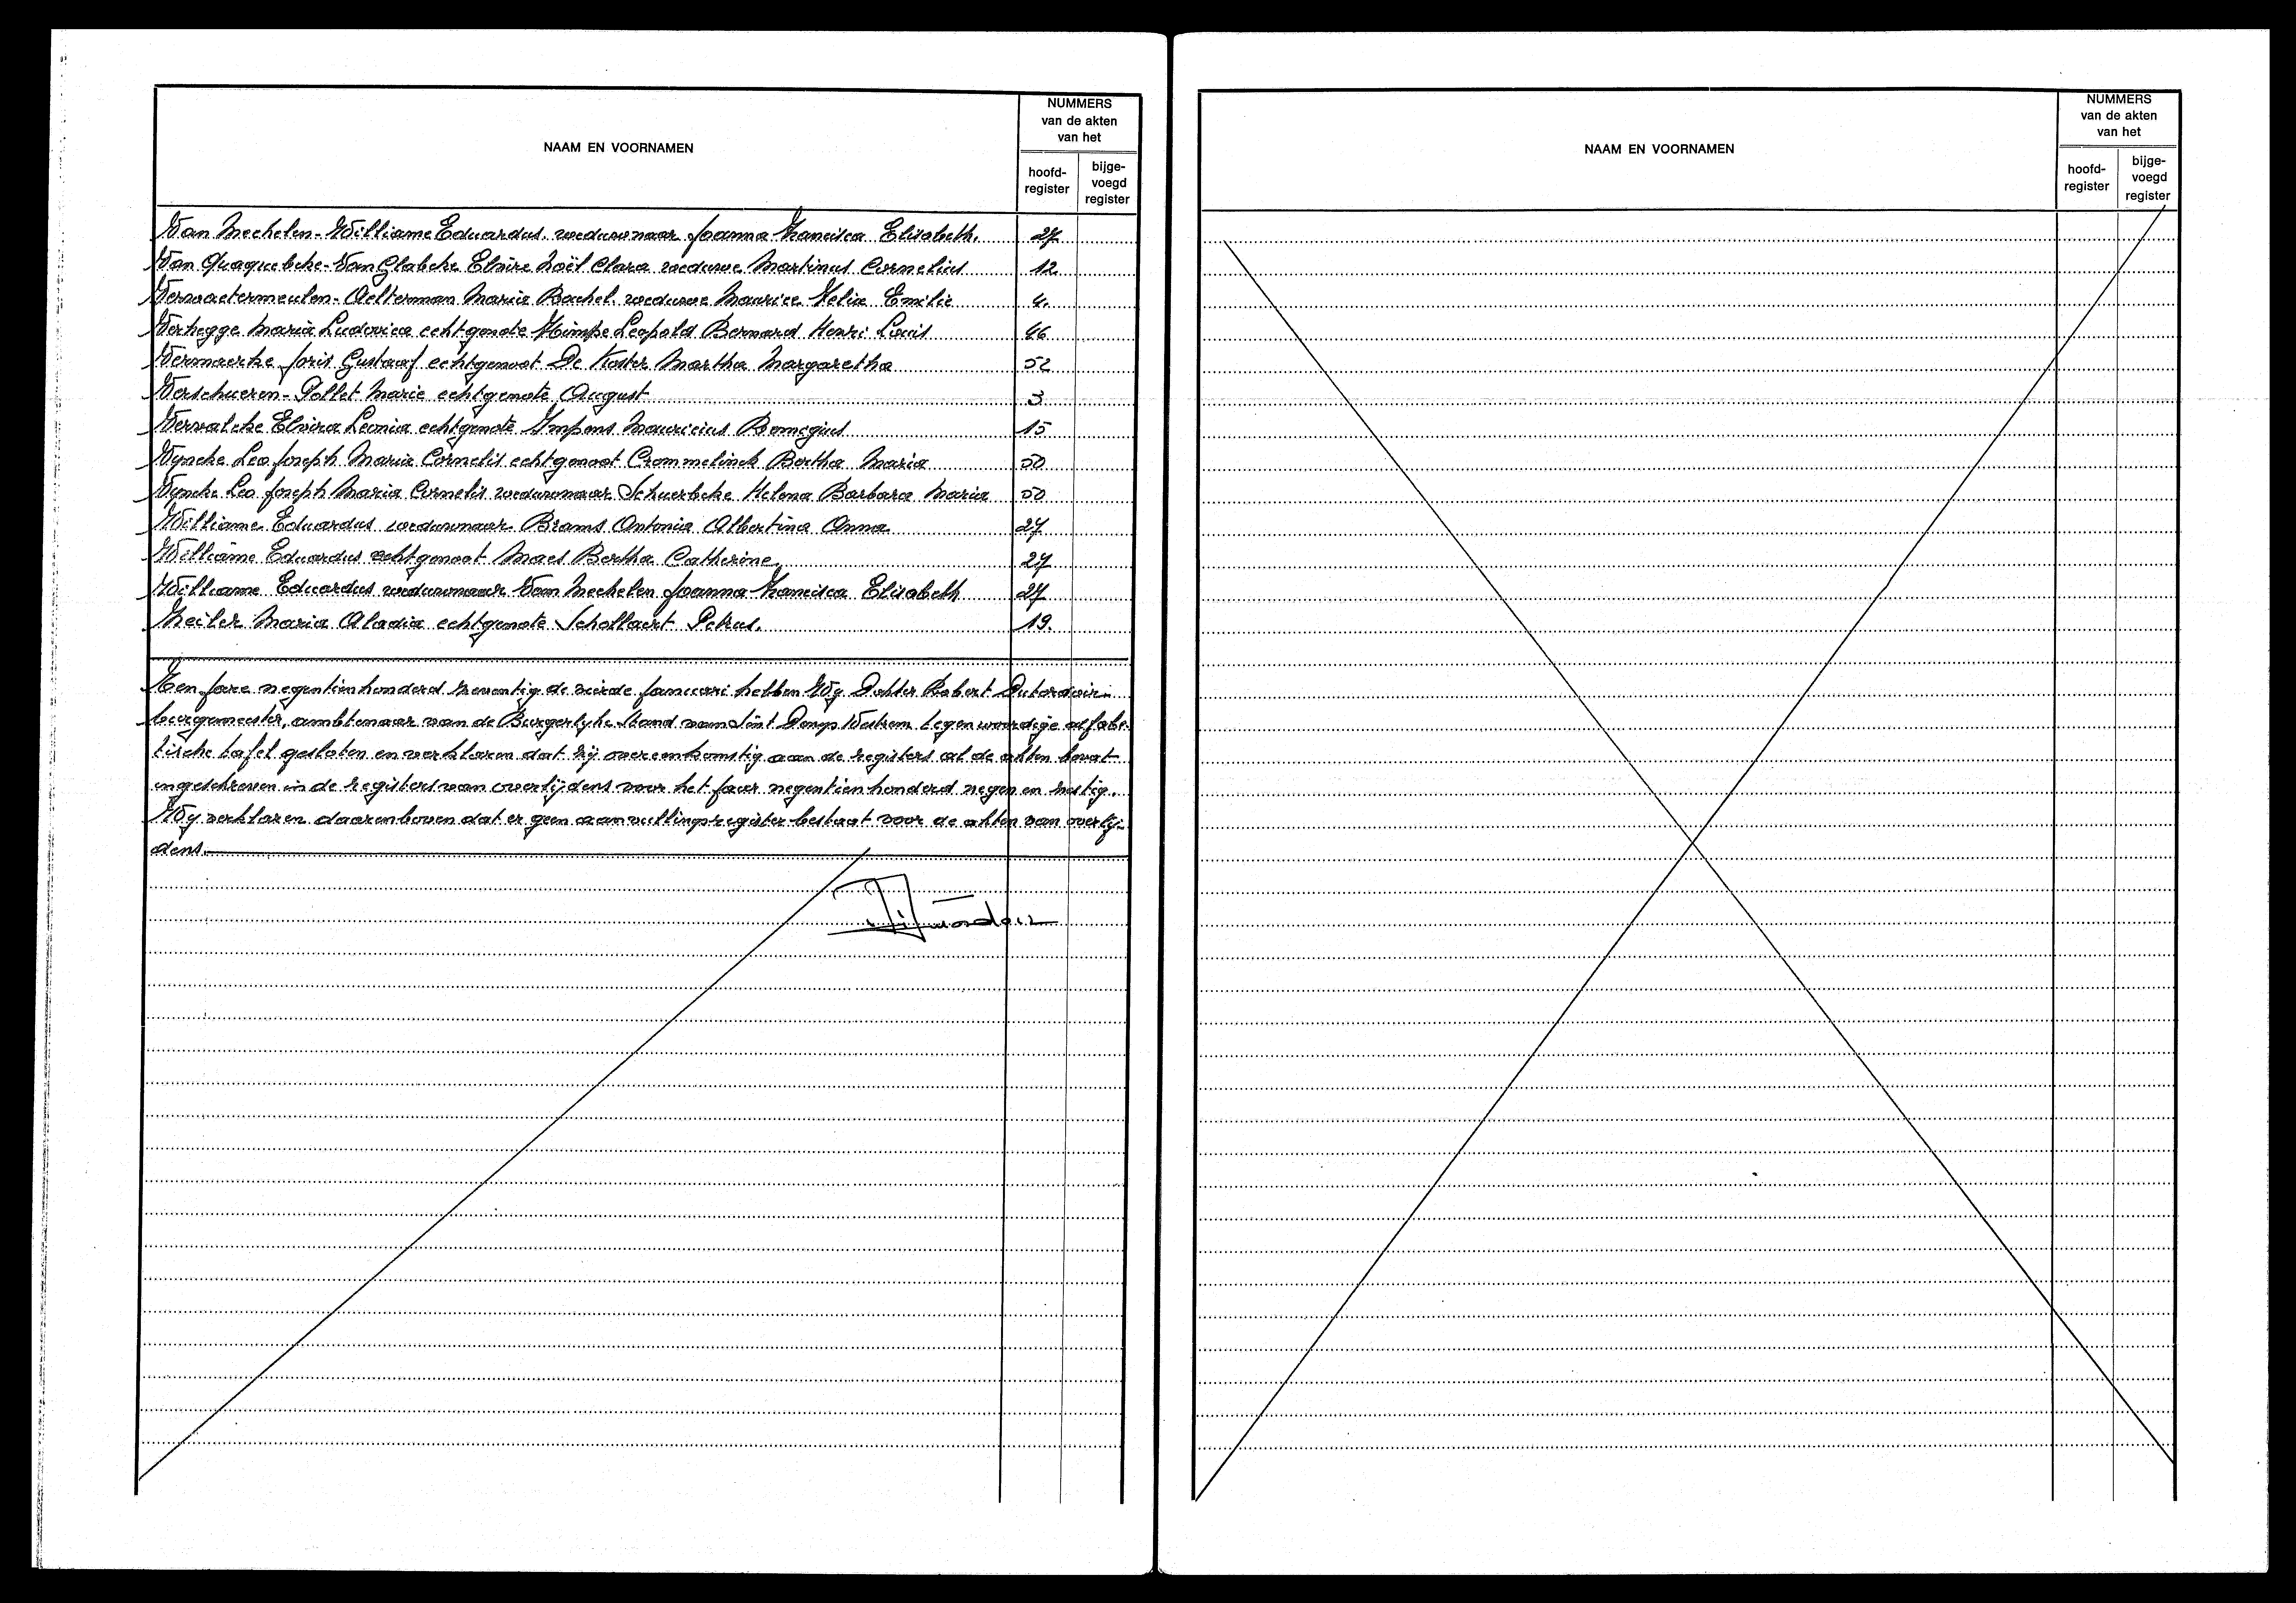 NAAM EN VOORNAMEN
NUMMERS
van de akten
van het
hoofd-
register
bijge-
voegd
register
Van Mechelen-Williame Eduardus. weduwnaar Joanna Francisca Elisabeth. 27
Van Quaquebeke-Van Glabeke Elvire Noël Clara weduwe Martinus Cornelius 12
Vervaetermeulen-Aelterman Maria Rachel weduwe Maurice Felix Emilie 4.
Verhegge Maria Ludovica echtgenote Himpe Leopold Bernard Henri Louis 46
Vermaerke Joris Gustaaf echtgenoot De Koster Martha Margaretha 52
Verschueren-Pollet Marie echtgenote August 3
Elvira Leonia echtgenote Impens Mauricius Remegius 15
Vyncke Leo Joseph Maria Cornelis echtgenoot Crommelinck Bertha Maria 50
Vyncke Leo Joseph Maria Cornelis weduwnaar Schuerbeke Helena Barbara Maria 50
Williame Eduardus weduwnaar Brams Antonia Albertina Anna 27
Williame Eduardus echtgenoot Maes Bertha Catherine. 27
Williame Eduardus weduwnaar Van Mechelen Joanna Francisca Elisabeth 27
Maria Aladia echtgenote Schollaert Petrus. 19.
Ten jare negentienhonderd zeventig de vierde januari hebben Wy Dokter Robert Dutordoir
burgemeester, ambtenaar van de Burgerlyke Stand van Sint Denys Westrem tegenwoordige alfabe-
tische tafel gesloten en verklaren dat zij overeenkomstig aan de registers al de akten bevat
ingeschreven in de registers van overlijdens voor het jaar negentienhonderd negen en zestig.
Wy verklaren daarenboven dat er geen aanvullingsregister bestaat voor de akten van overlij-
dens.
NAAM EN VOORNAMEN
NUMMERS
van de akten
van het
hoofd-
register
bijge-
voegd
register